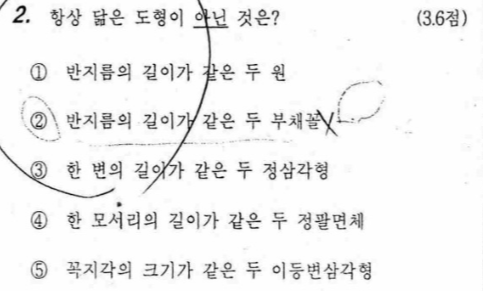 2. 항상 닮은 도형이 아닌 것은? (3.6점)
① 반지름의 길이가 같은 두 원
② 반지름의 길이가 같은 두 부채꼴
③ 한 변의 길이가 같은 두 정삼각형
④ 한 모서리의 길이가 같은 두 정팔면체
⑤ 꼭지각의 크기가 같은 두 이등변삼각형